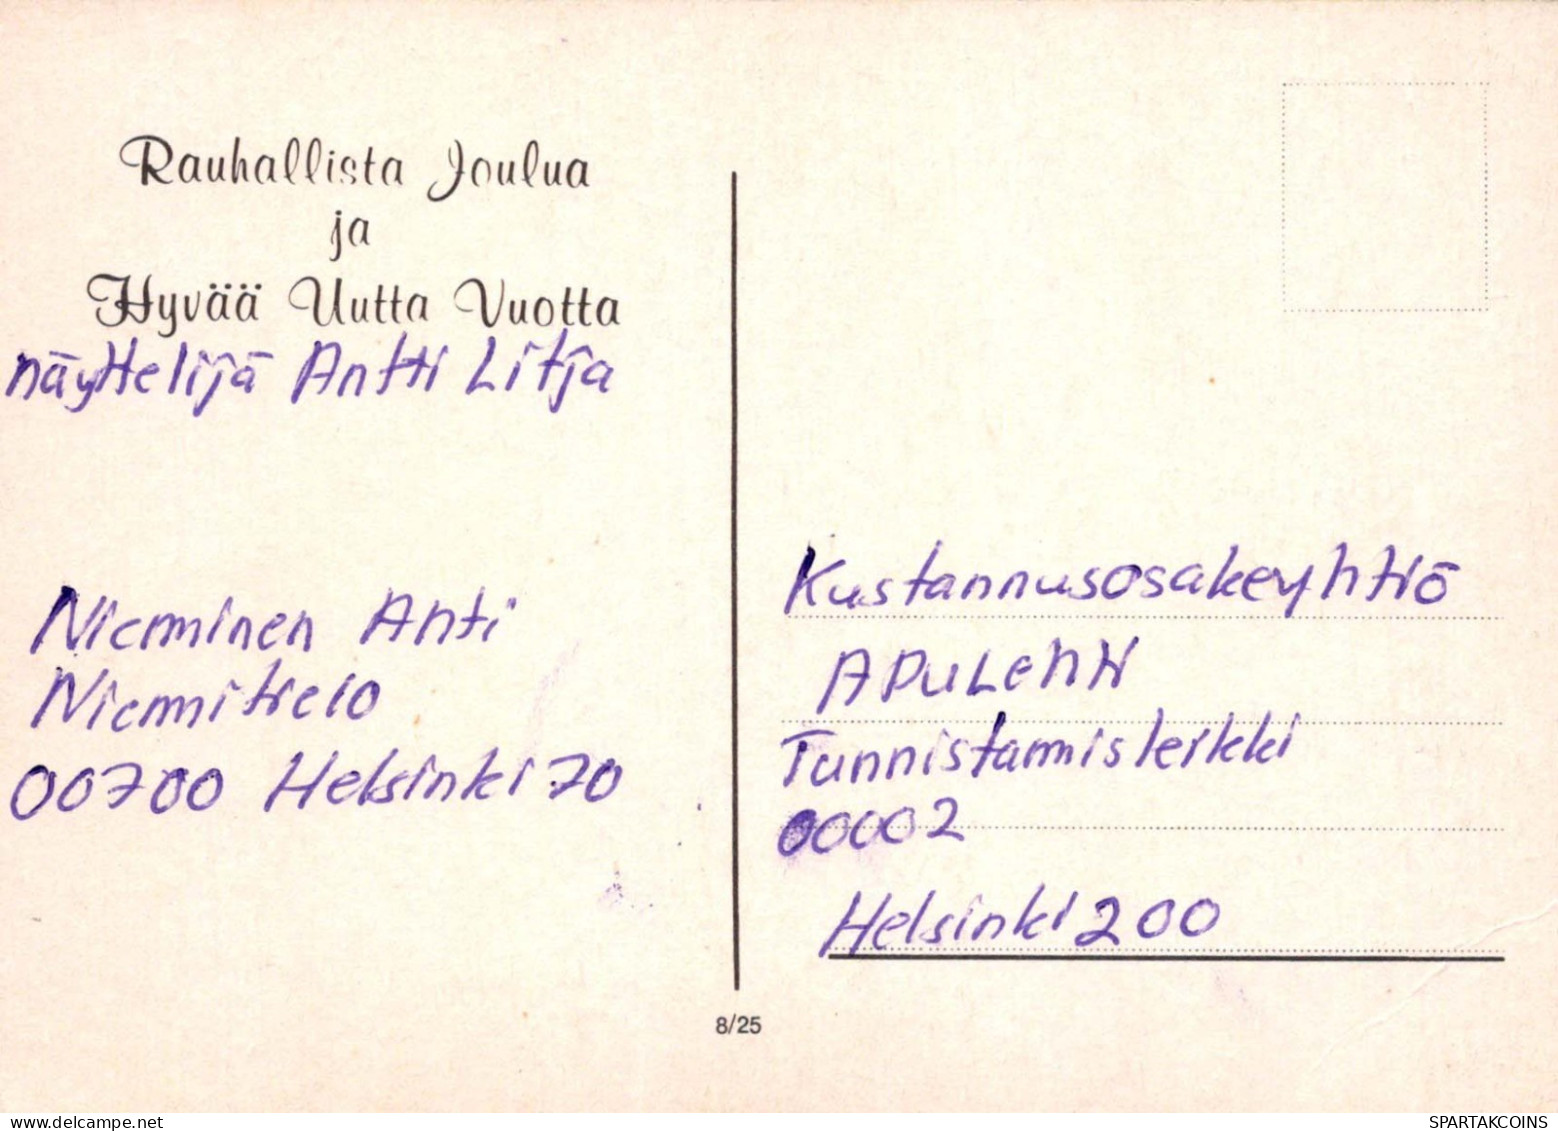 Rauhallista Joulua
ja
Hyvää Uutta Vuotta
näyttelijä Antti Litja
Nieminen Antti
Niemitie 10
00700 Helsinki 70
Kustannusosakeyhtiö
APULEHN
Tunnistamisleikki
00002
Helsinki 200
8/25
delcampe.net
SPARTAKCOINS